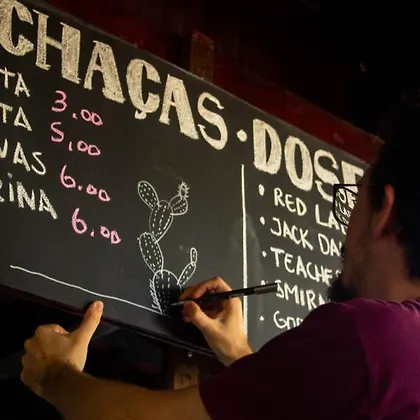 CHAÇAS · DOSE
TA 3.00
TA 5,00
VAS 6.00
RINA 6.00
• RED LA
• JACK DA
• TEACHE
• SMIRN
• GO